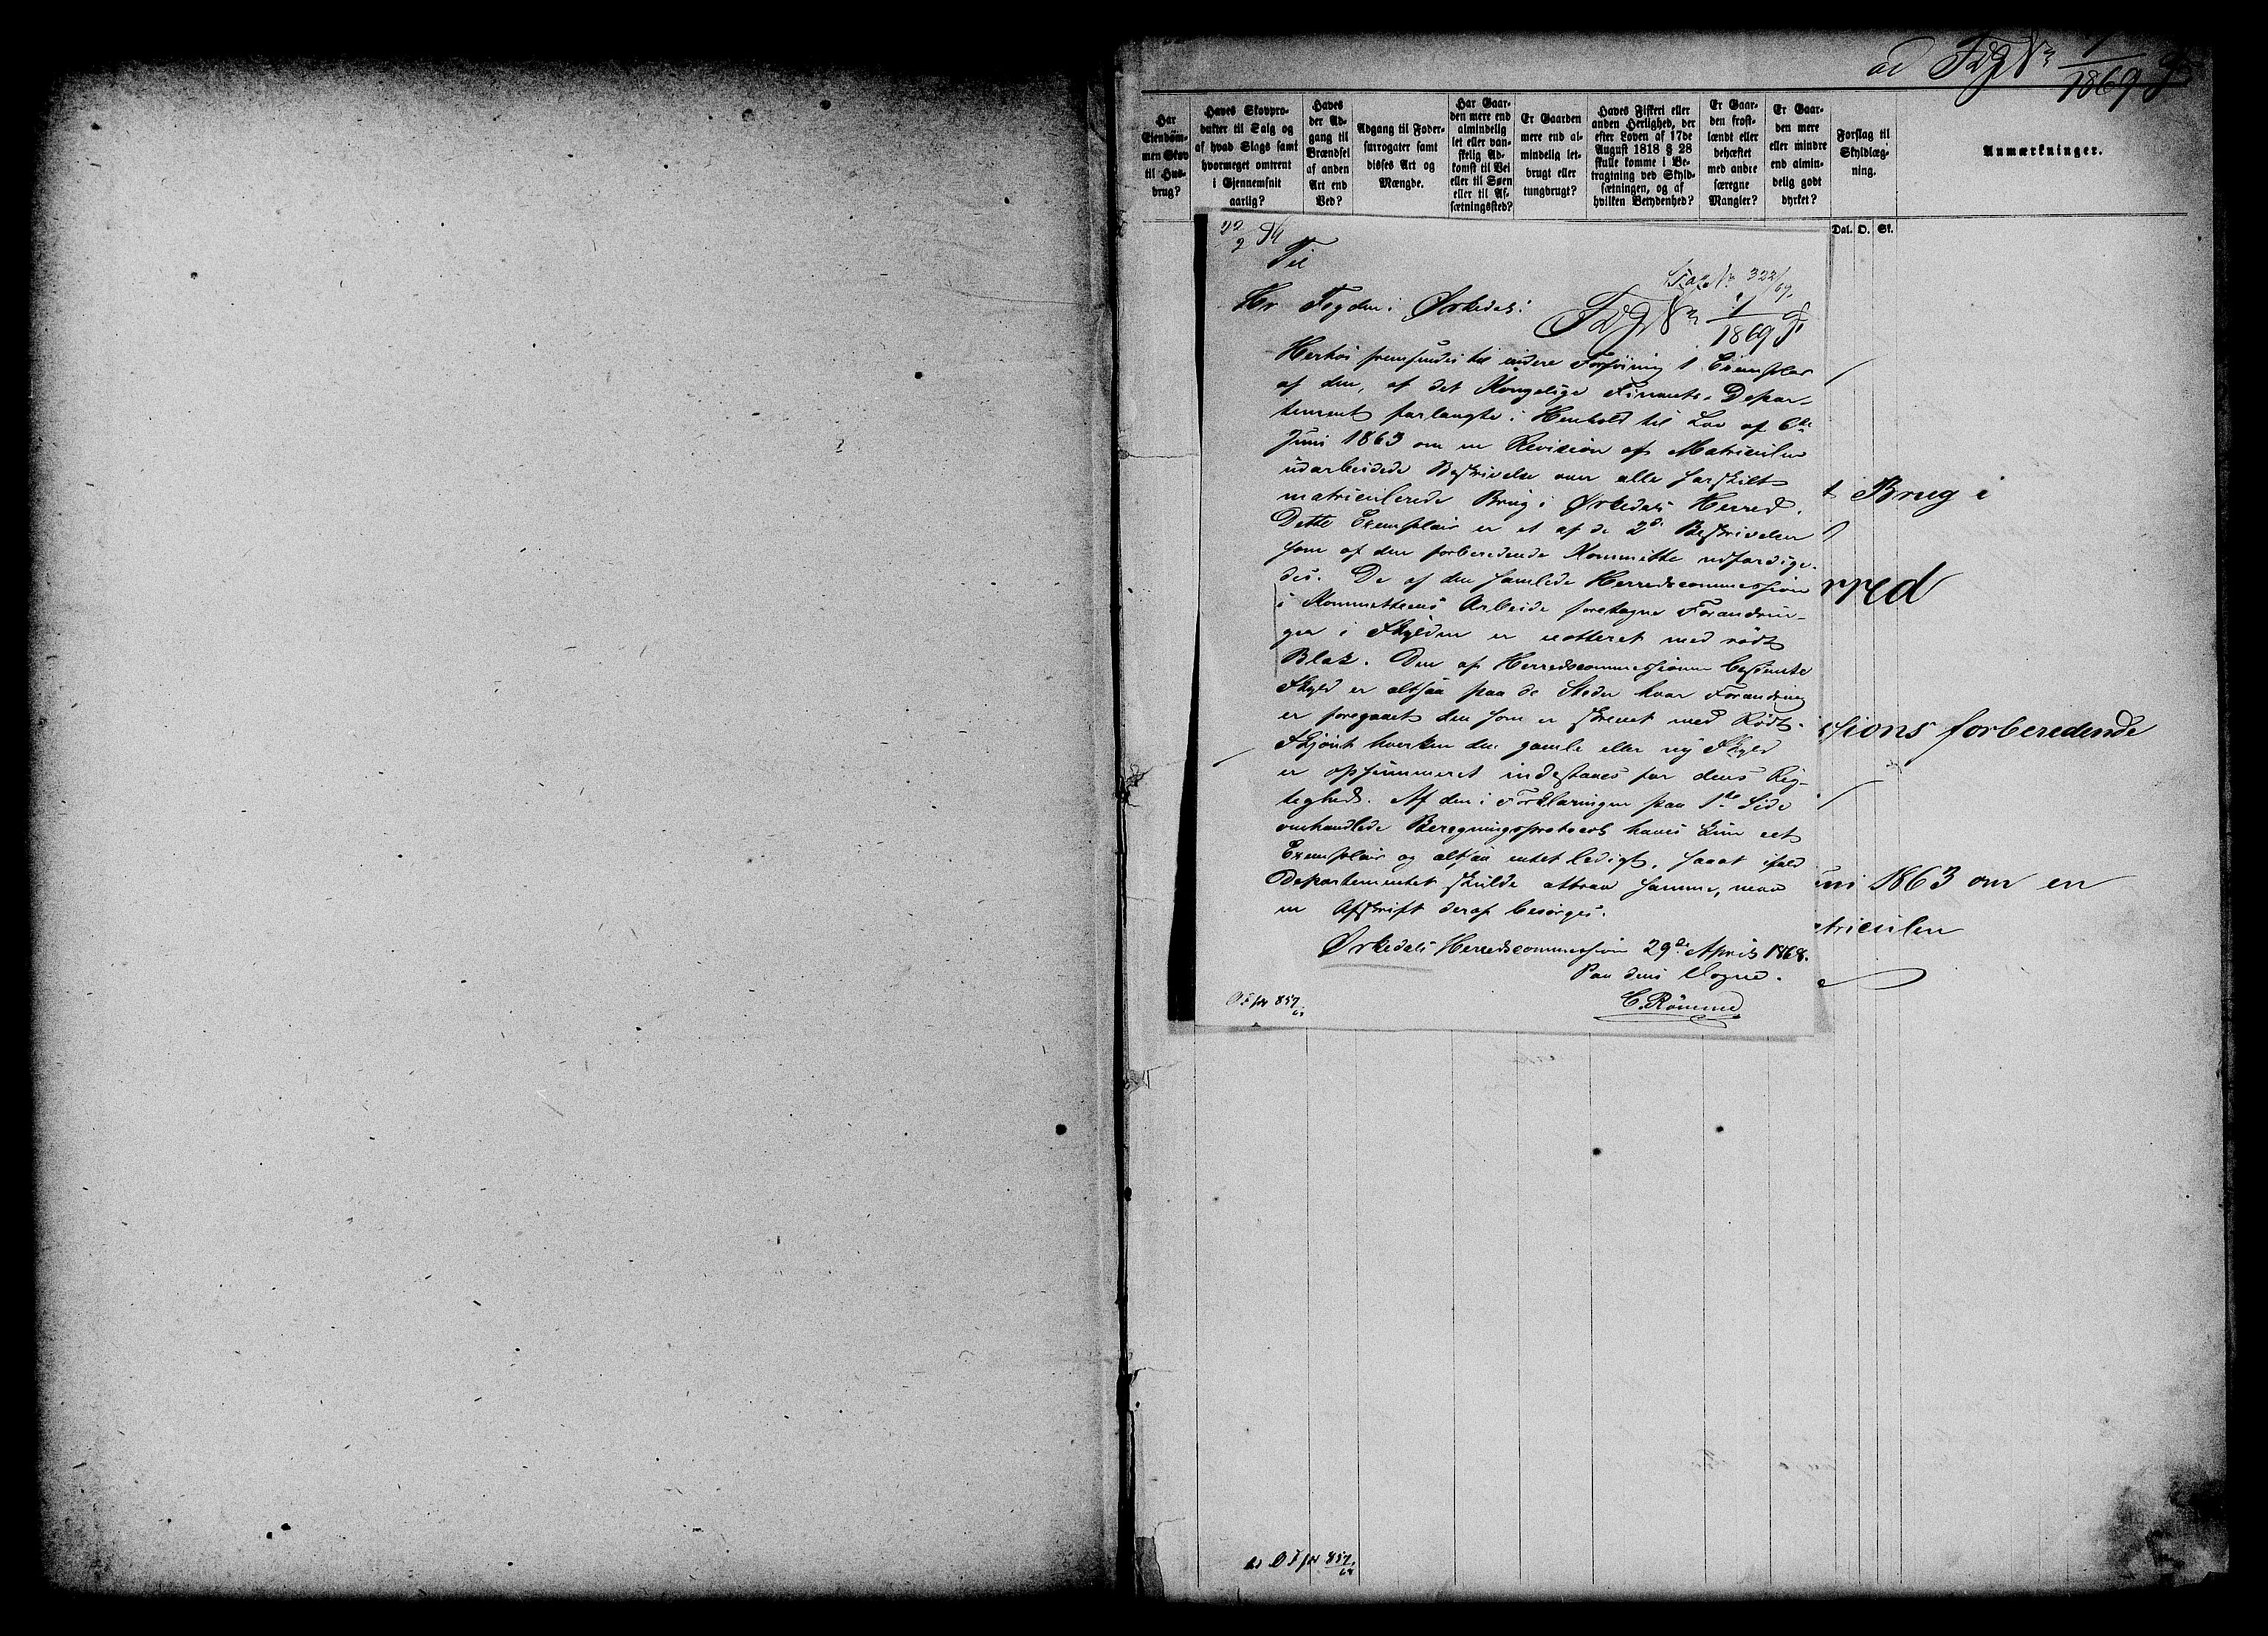 ad
1
1869
Har
Eiendom-
men Skov
til Hus-
brug?
Haves Skovpro-
dukter til Salg og
af hvad Slags samt
hvormeget omtrent
i Gjennemsnit
aarlig?
Haves
der Ad-
gang til
Brændsel
af anden
Art end
Ved?
Adgang til Foder-
surrogater samt
disses Art og
Mængde.
Har Gaar-
den mere end
almindelig
let eller van-
skelig Ad-
komst til Vei
eller til Søen
eller til Af-
sætningssted?
Er Gaarden
mere end al-
mindelig let-
brugt eller
tungbrugt?
Haves Fiskeri eller
anden Herlighed, der
efter Loven af 17de
August 1818 § 28
skulle komme i Be-
tragtning ved Skyld-
sætningen, og af
hvilken Betydenhed?
Er Gaar-
den frost-
lændt eller
behæftet
med andre
særegne
Mangler?
Er Gaar-
den mere
eller mindre
end almin-
delig godt
dyrket?
Forslag til
Skyldlæg-
ning.
Anmærkninger.
Dal. O. Sk.
Til
322/69.
Hr Fogden i Ørkedal:
1
1869
Herhos fremsendes til videre Forføining 1 Exemplar
af den, af det Kongelige Finants-Depar-
tement forlangte i Henhold til Lov af 6te
Juni 1863 om en Revision af Matriculen
udarbeidede Beskrivelse over alle særskilt
matriculerede Brug i Ørkedals Herred.
Dette Exemplair er et af de 2de Beskrivelser
som af den forberedende Kommitte udfærdige-
des. De af den samlede Herredscommission
i Kommitteens Arbeide foretagne Forandrin-
ger i Skylden er notteret med rødt
Blæk. Den af Herredscommissionen bestemte
Skyld er altsaa paa de Steder hvor Forandring
er foregaaet den som er skrevet med Rødt.
Skjønt hverken den gamle eller ny Skyld
er opsummeret indestaaes for dens Rig-
tighed. Af den i Forklaringen paa 1ste Side
omhandlede Beregningsprotocol haves kun eet
Exemplair og altsaa intet ledigt, saaat ifald
Departementet skulde attraa samme, maa
en Afskrift deraf besørges.
Ørkedals Herredscommission 29de April 1868.
Paa dens Vegne.
C. Rømme
857
t Brug i
rred
sions forberedende
uni 1863 om en
triculen
857